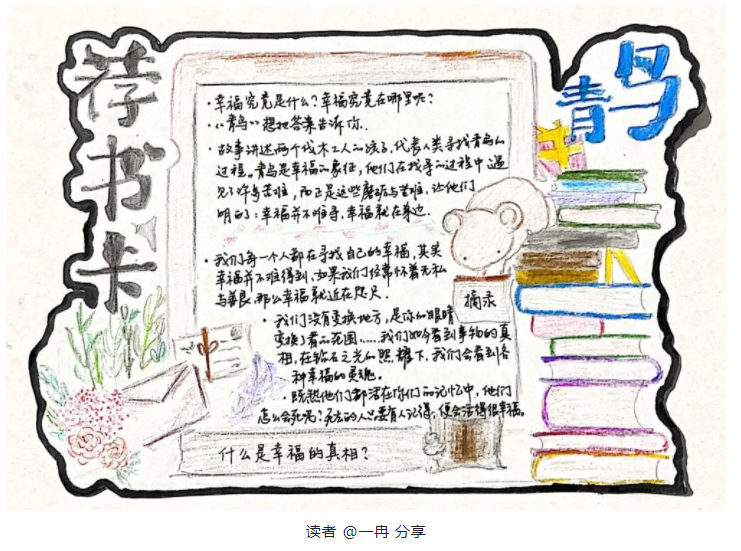 荐书卡
青鸟
·幸福究竟是什么?幸福究竟在哪里呢?
·《青鸟》想把答案告诉你.
·故事讲述两个伐木工人的孩子,代表人类寻找青鸟的
过程。青鸟是幸福的象征,他们在找寻的过程中遇
见了许多苦难,而正是这些磨砺与苦难,让他们
明白了:幸福并不难寻,幸福就在身边.
·我们每一个人都在寻找自己的幸福,其实
幸福并不难得到,如果我们经常怀着无私
与善良,那么幸福就近在咫尺.
摘录
·我们没有变换地方,是你的眼睛
变换了看的范围……我们如今看到事物的真
相,在钻石之光的照耀下,我们会看到各
种幸福的灵魂。
·既然他们都活在你们的记忆中,他们
怎么会死呢?死去的人只要有人记得,便会活得很幸福。
什么是幸福的真相?
读者 @一冉 分享